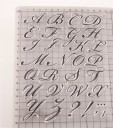 A B C D
E F G H
I J K L
M N O P
Q R S T
U V W X
Y Z ? ! : ;